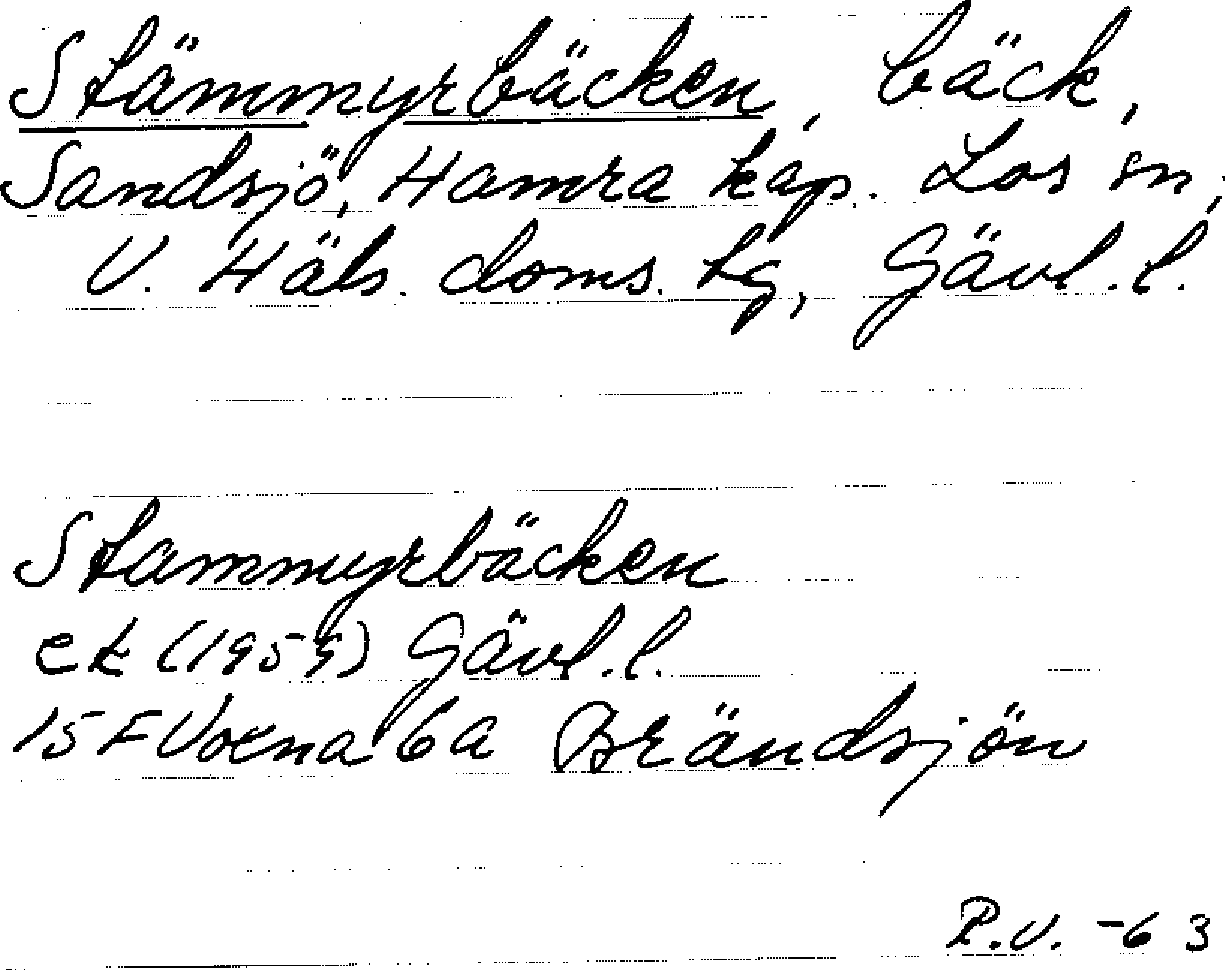 Stämmyrbäcken, bäck,
Sandsjö, Hamra kap. Los sn,
V. Häls. doms. tg, Gävl. l.
Stammyrbäcken
ek (1959) Gävl. l.
15F Voxna 6a Brändsjön
R.V. -63